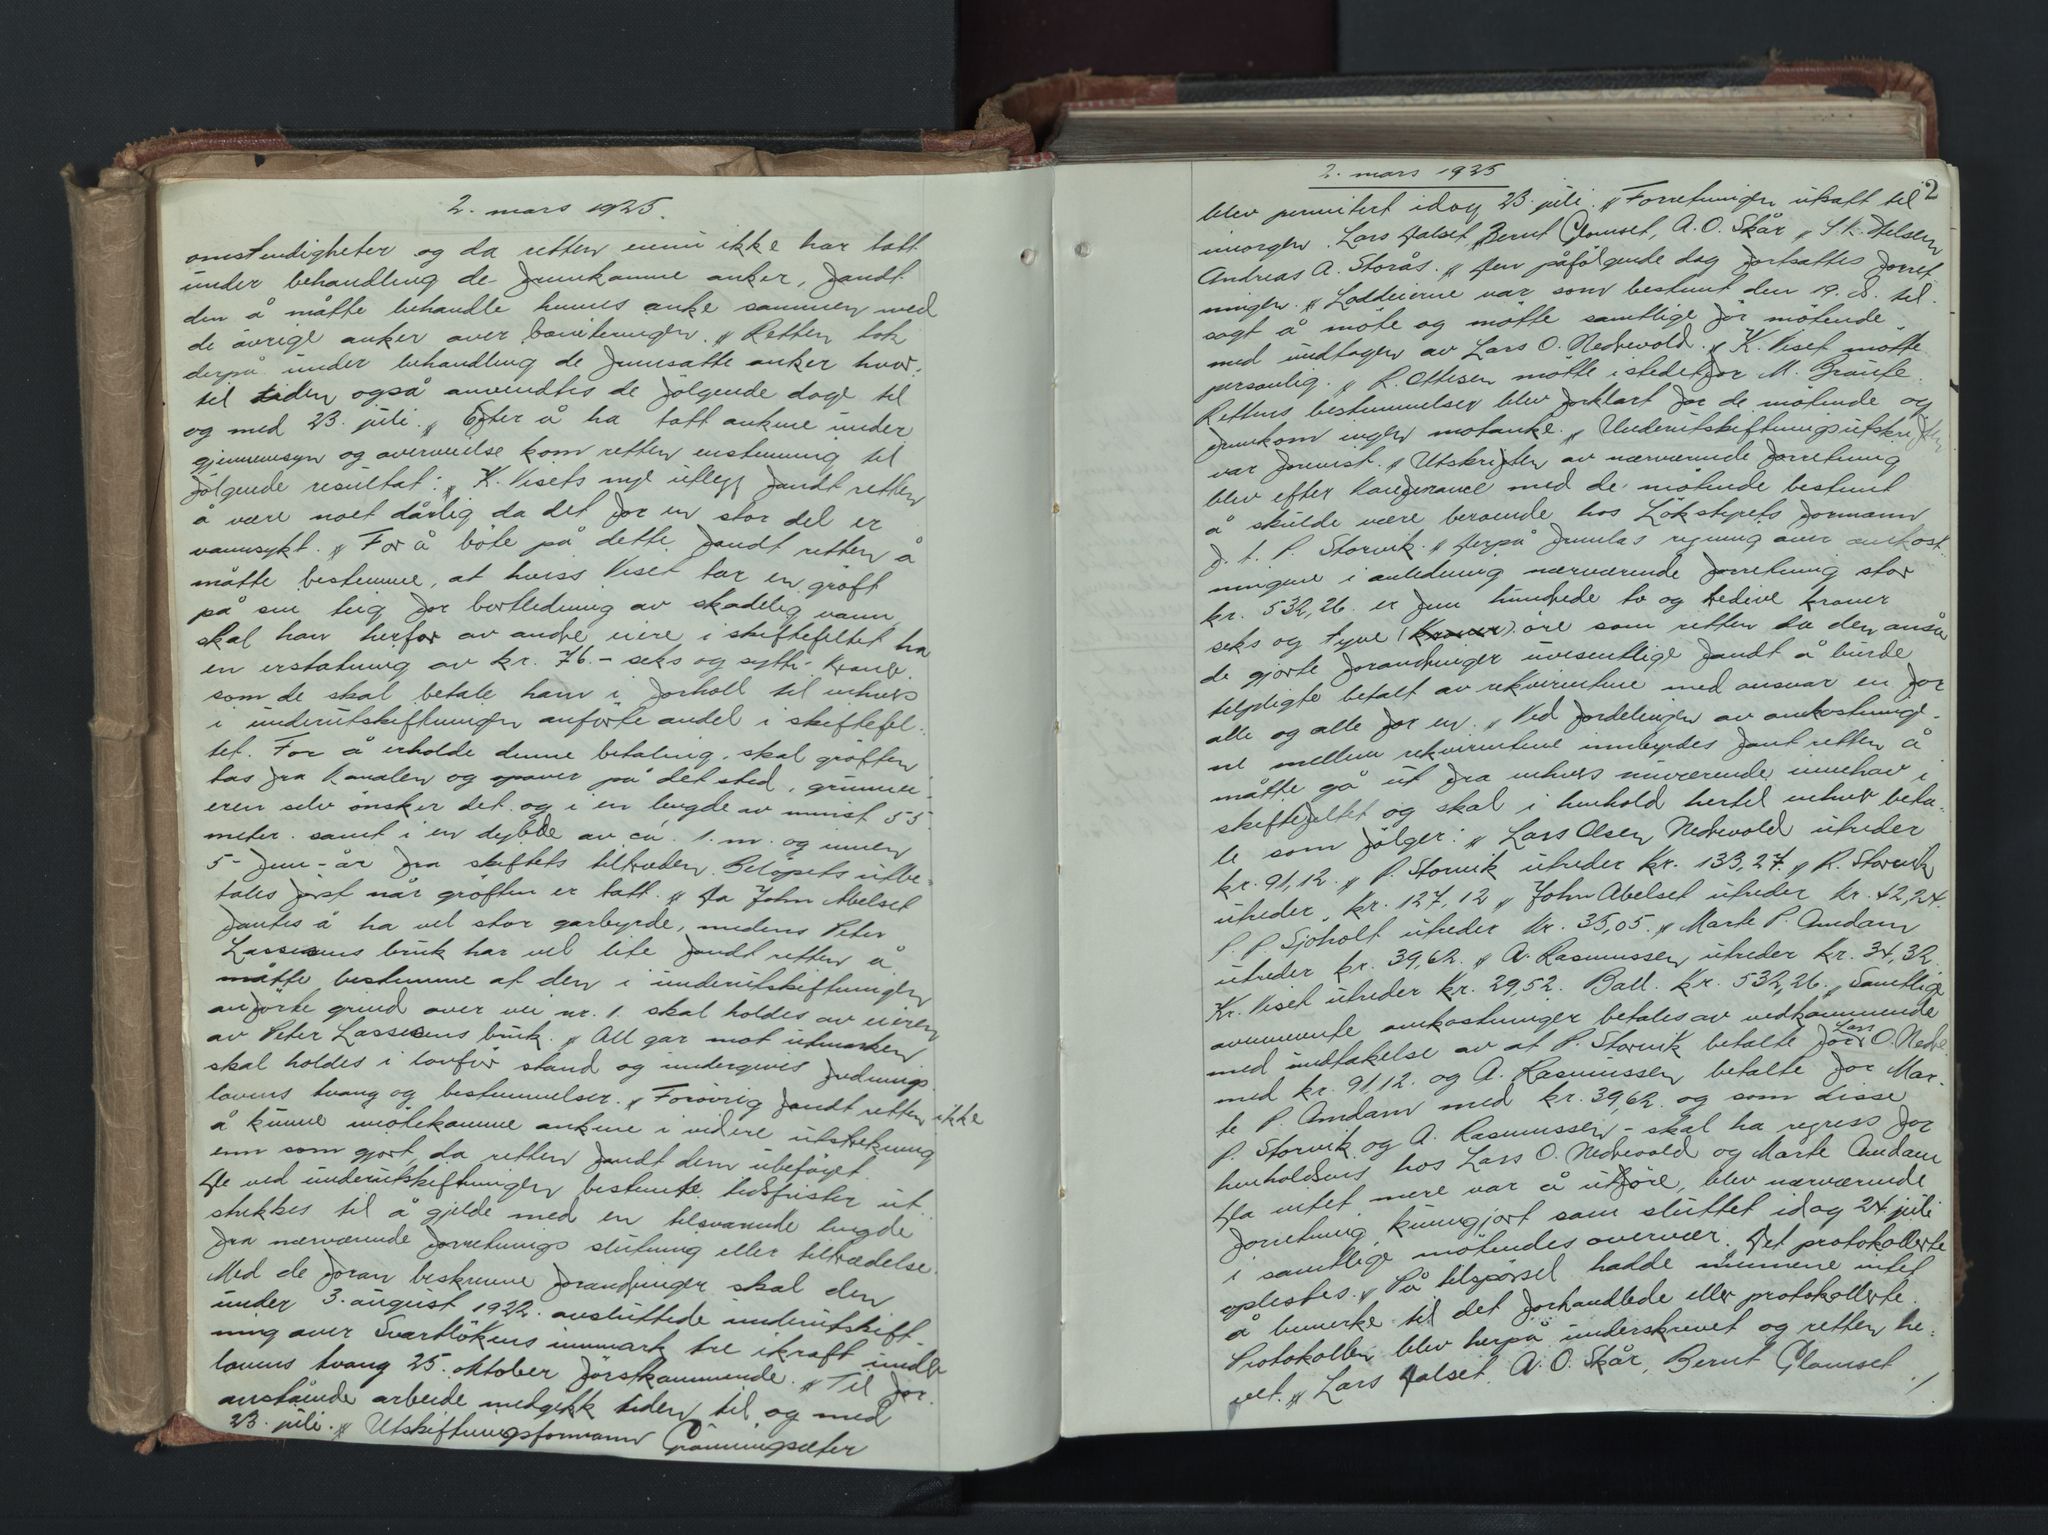 2. mars 1925.
omstendigheter og da retten ennu ikke har tatt
under behandling de fremkomne anker, fandt
den å måtte behandle hennes anke sammen med
de øvrige anker over boniteringen. „ Retten tok
derpå under behandling de fremsatte anker hvor-
til tiden også anvendtes de følgende dage til
og med 23. juli. „ Efter å ha tatt ankene under
gjennemsyn og overveielse kom retten enstemmig til
følgende resultat: „ K. Visets nye utlegg fandt retten
å være noet dårlig da det for en stor del er
vannsykt. „ For å bøte på dette fandt retten å
måtte bestemme, at hviss Viset tar en grøft
på sin teig for bortledning av skadelig vann,
skal han herfor av andre eiere i skiftefeltet ha
en erstatning av kr. 76.- seks og sytti- kroner
som de skal betale ham i forholl til enhvers
i underutskiftningen anførte andel i skiftefel-
tet. For å erholde denne betaling, skal grøften
tas fra kanalen og opover på det sted, grunnei-
eren selv ønsker det og i en lengde av minst 55
meter. samt i en dybde av ca. 1. m. og innen
5- fem- år fra skiftets tiltreden. Beløpets utbe-
tales først når grøften er tatt. „ Da John Abelset
fantes å ha vel stor garbyrde, medens Peter
Lassesens bruk har vel lite fandt retten å
måtte bestemme at den i underutskiftningen
anførte grind over vei nr. 1. skal holdes av eieren
av Peter Lassesens bruk. „ All gar mot utmarken
skal holdes i lovfør stand og undergives fednings-
lovens tvang og bestemmelser. „ Forøvrig fandt retten ikke
å kunne imøtekomme ankene i videre utstrekning
enn som gjort, da retten fandt dem ubeføyet.
De ved underutskiftningen bestemte tidsfrister ut-
strekkes til å gjelde med en tilsvarende lengde
fra nærværende forretnings slutning eller tiltrædelse.
Med de foran beskrevne forandringer skal den
under 3. august 1922. avsluttede underutskift-
ning over Svartløkens innmark tre ikraft under
lovens tvang 25. oktober førstkommende. „ Til for-
anstående arbeide medgikk tiden til og med
23. juli. „ Utskiftningsformann Grønningsæter
2. mars 1925
2
blev permitert idag 23. juli. „ Forretningen utsatt til
imorgen. Lars Dalset, Bernt Glomset, A. O. Skår „ S. K. Helsem
Andreas A. Storås. „ Den påfølgende dag fortsattes forret-
ningen. „ Loddeierne var som bestemt den 19. ds. til-
sagt å møte og møtte samtlige før møtende
med undtagen av Lars O. Nedrevold. „ K. Viset møtte
personlig. „ R. Ottesen møtte istedetfor M. Braute.
Rettens bestemmelser blev forklart for de møtende og
fremkom ingen motanke. „ Underutskiftningsutskriften
var forevist. „ Utskriften av nærværende forretning
blev efter konferanse med de møtende bestemt
å skulde være beroende hos Løkstyrets formann
f. t. P. Storvik. „ Derpå fremlas regning over omkost-
ningene i anledning nærværende forretning stor
kr. 532,26. er fem hundrede to og tredeve kroner
seks og tyve (kroner) øre som retten da den anså
de gjorte forandringer uvesentlige fandt å burde
tilpligte betalt av rekvirentene med ansvar en for
alle og alle for en. „ Ved fordelingen av omkostninge-
ne mellem rekvirentene innbyrdes fant retten å
måtte gå ut fra enhvers nuværende innehav i
skiftefeltet og skal i henhold hertil enhver beta-
le som følger: „ Lars Olsen Nedrevold utreder
kr. 91,12. „ P. Storvik utreder kr. 133,27 „ R. Storvik
utreder kr. 127,12 „ John Abelset utreder kr. 42,24.
P. P. Sjøholt utreder kr. 35,05. „ Marte P. Amdam
utreder kr. 39,62. „ A. Rasmussen utreder kr. 34,32
Kr. Viset utreder kr. 29,52. Ball. kr. 532,26. „ Samtlige
ovennevnte omkostninger betales av vedkommende
med undtakelse av at P. Storvik betalte for Lars O. Nedre-
med kr. 91,12. og A. Rasmussen betalte for Mar-
te P. Amdam med kr. 39,62. og som disse
P. Storvik og A. Rasmussen - skal ha regress for
henholdsvis hos Lars O. Nedrevold og Marte Amdam
Da intet mere var å utføre, blev nærværende
forretning kunngjort som sluttet idag 24. juli
i samtlige møtendes overvær. Det protokollerte
oplestes. „ På tilspørsel hadde ingen intet
å bemerke til det forhandlede eller protokollerte.
Protokollen blev herpå underskrevet og retten he-
vet. „ Lars Dalset. A. O. Skår, Bernt Glomset /